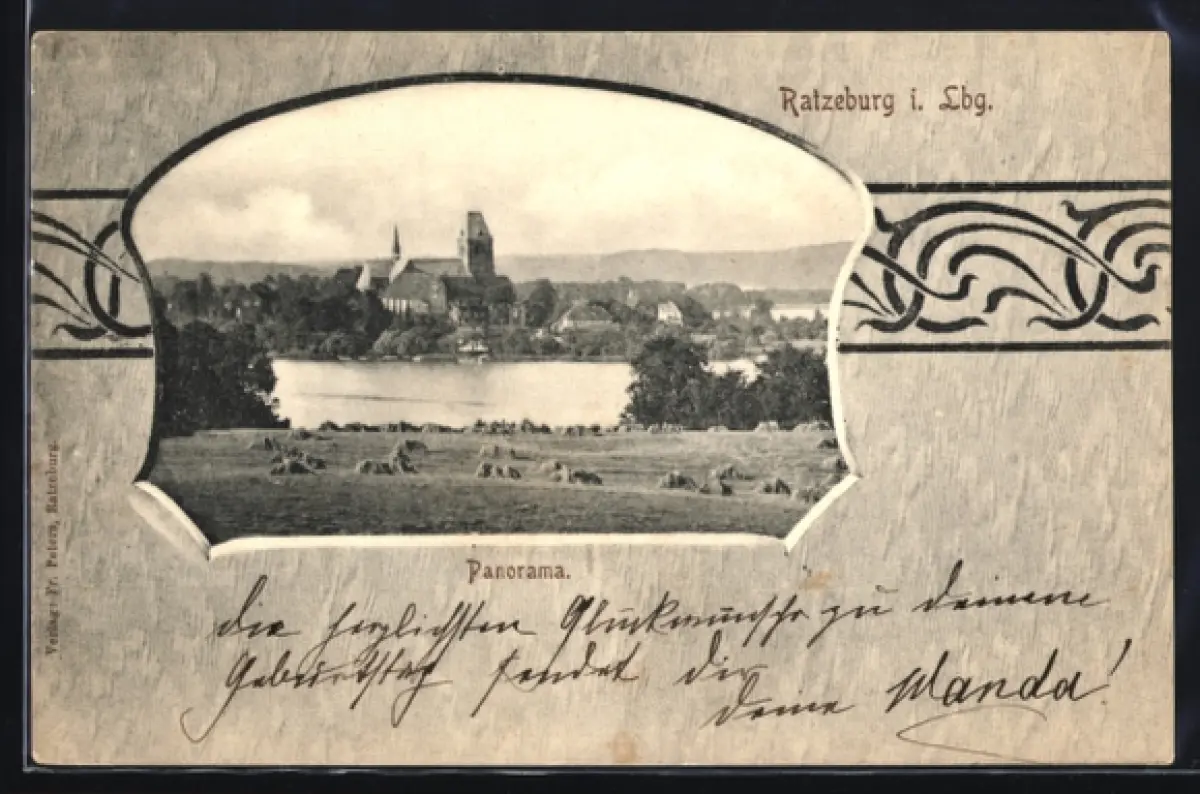 Ratzeburg i. Lbg.
Verlag: Fr. Peters, Ratzeburg.
Panorama.
die herzlichsten Glückwünsche zu deinem
Geburtstag sendet dir
deine Wanda!